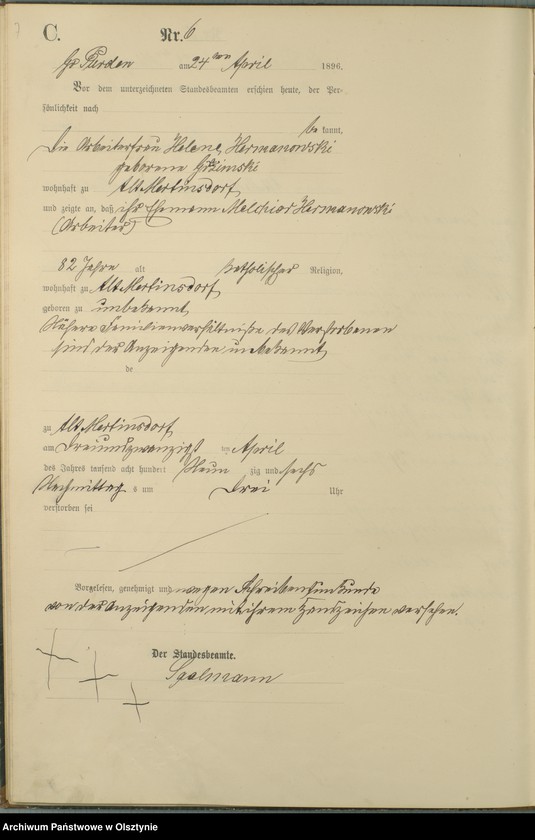 C.
Nr. 6
Gr Purden am 24ten April 1896.
Vor dem unterzeichneten Standesbeamten erschien heute, der Per-
sönlichkeit nach
be kannt,
Die Arbeiterfrau Helene Hermanowski
geborene
wohnhaft zu Alt Mertinsdorf
und zeigte an, daß ihr Ehemann Melchior Hermanowski
(Arbeiter)
82 Jahre alt katholischer Religion,
wohnhaft zu Alt Mertinsdorf
geboren zu unbekannt,
Nähere Familienverhältniße des Verstorbenen
sind der Anzeigenden unbekannt,
de
zu Alt Mertinsdorf
am dreiundzwanzigst en April
des Jahres tausend acht hundert Neun zig und sechs
Nachmittag s um drei Uhr
verstorben sei
Vorgelesen, genehmigt und wegen Schreibensunkunde
von der Anzeigenden mit ihrem Handzeichen versehen.
Der Standesbeamte.
Saalmann
Archiwum Państwowe w Olsztynie